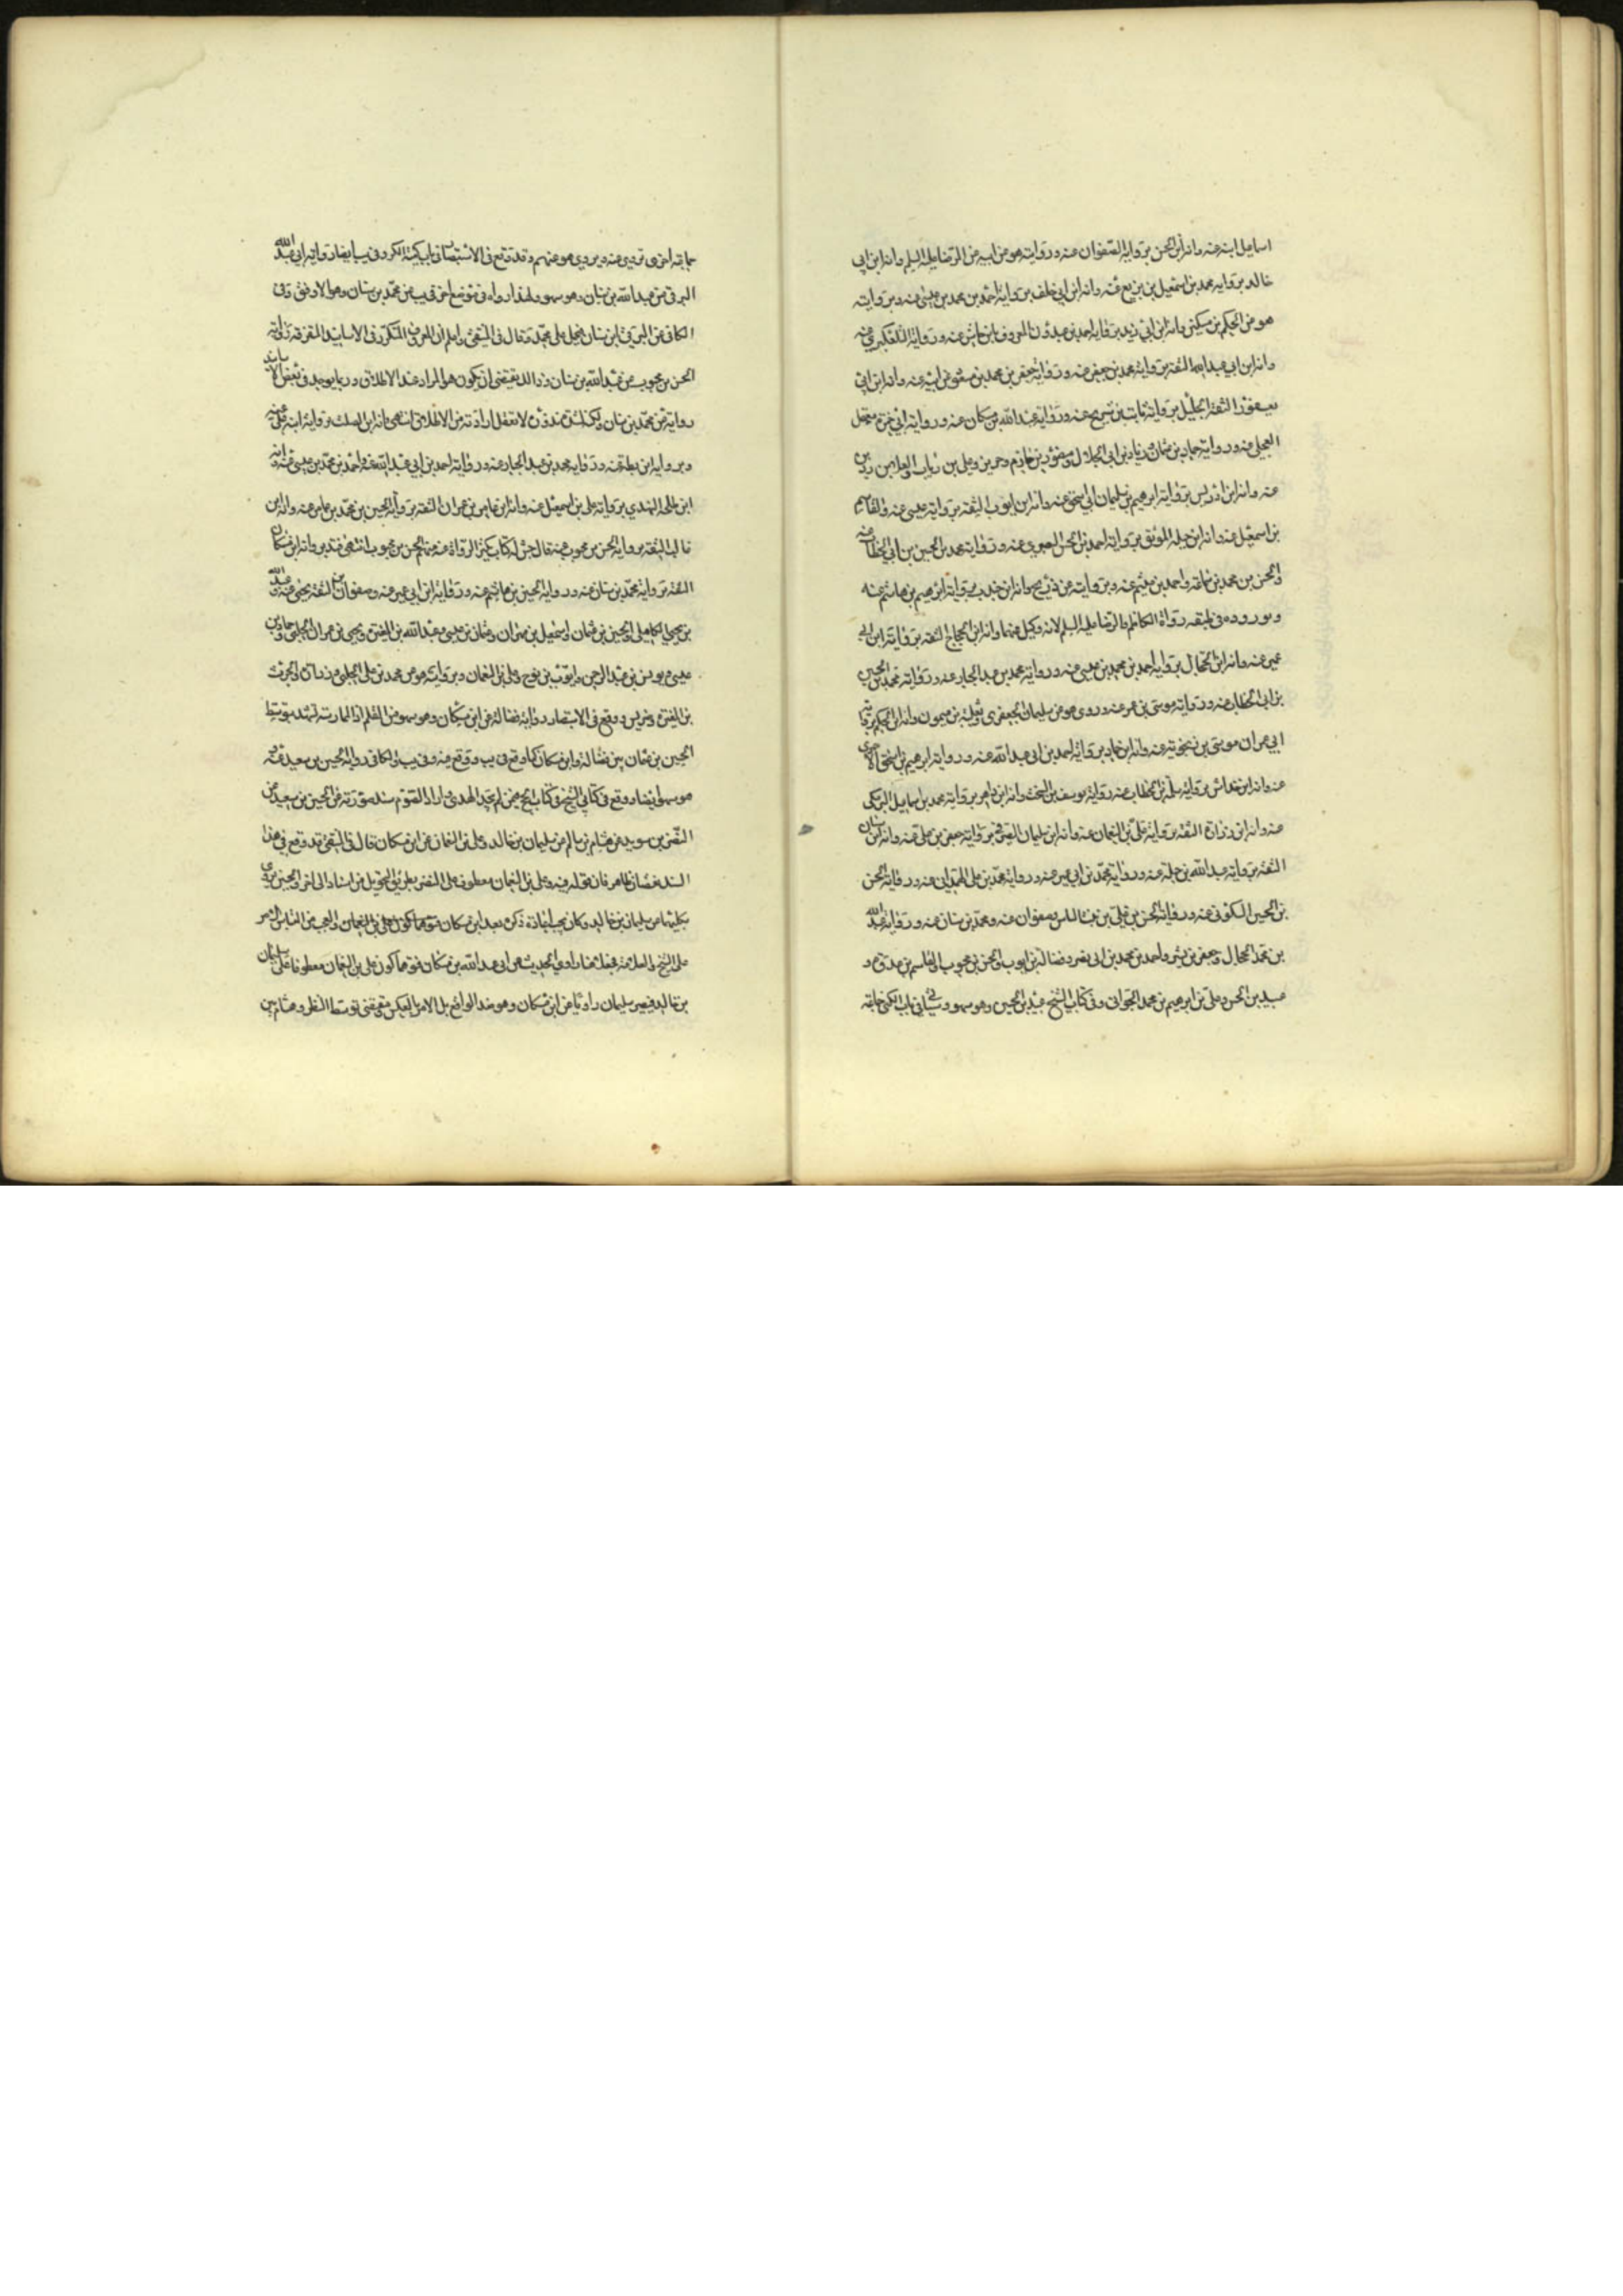 اسماعيل ابنه عنه وانه ابن الحسن برواية الصفوان عنه ورواية هو عن ابيه عن الرضا عليه السلم وانه ابن ابي
خالد برواية محمد بن اسمعيل بن بزيع عنه وانه ابن ابي خلف برواية احمد بن محمد بن عيسى عنه وبروايته
هو عن الحكم بن مسكين وانه ابن ابي زيد برواية احمد بن عبدون المعروف بابن حاشر عنه ورواية التلعكبري عنه
وانه ابن ابي عبدالله الثقة برواية محمد بن جعفر عنه ورواية جعفر بن محمد بن مسعود عن ابيه عنه وانه ابن ابي
يعفور الثقة الجليل برواية ثابت بن شريح عنه ورواية عبدالله بن مسكان عنه ورواية ابي حمزة معقل
العجلي عنه ورواية حماد بن عثمان وزياد بن ابي الحلال ومنصور بن حازم وحريز وعلي بن رئاب والعلا بن رزين
عنه وانه ابن ادريس برواية ابرهيم بن سليمان ابي اسحق عنه وانه ابن ايوب الثقة برواية عيسى عنه والقاسم
بن اسمعيل عنه وانه ابن جبلة الموثق برواية احمد بن الحسن البصري عنه ورواية محمد بن الحسين بن ابي الخطاب عنه
والحسن بن محمد بن سماعة واحمد بن ميثم عنه وبروايته عن ذريح وانه ابن جندب برواية ابرهيم بن هاشم عنه
وبوروده في طبقه رواة الكاظم والرضا عليه السلم لانه وكيل عنهما وانه ابن الحجاج الثقة برواية ابن ابي
عمير عنه وانه ابن الحجال برواية احمد بن محمد بن عيسى عنه ورواية محمد بن عبد الجبار عنه ورواية محمد بن الحسين
بن ابي الخطاب عنه ورواية موسى بن عمر عنه وروى هو عن سليمان الجعفري وثعلبة بن ميمون وانه ابن الحكم برواية
ابي عمران موسى بن زنجويه عنه وانه ابن حماد برواية احمد بن ابي عبد الله عنه ورواية ابرهيم بن اسحق الاحمري
عنه وانه ابن خداش برواية سلمة بن الخطاب عنه رواية يوسف بن السخت وانه ابن داهر برواية محمد بن اسماعيل البرمكي
عنه وانه ابن زرارة الثقة برواية علي بن النعمان عنه وانه ابن سليمان الصيرفي برواية جعفر بن علي عنه وانه ابن سنان
الثقة برواية عبد الله بن جبلة عنه ورواية محمد بن ابي عمير عنه ورواية محمد بن علي الهمداني عنه ورواية الحسن
بن الحسين السكوني عنه ورواية الحسن بن علي بن فضال وصفوان عنه ومحمد بن سنان عنه ورواية عبدالله
بن محمد الحجال وجعفر بن بشير واحمد بن محمد بن ابي نصر وفضالة بن ايوب والحسن بن محبوب والقاسم بن عروة و
عبيد بن الحسن وعلي بن ابرهيم بن محمد الجواني وفي كتاب الشيخ عبيد بن الحسين وهو سهو وسيأتي في باب الكنى خاتمه
جماعة اخرى تروي عنه ويروي هو عنهم وقد وقع في الاستبصار في باب كمية الكر وفي يب ايضا رواية ابي عبدالله
البرقي عن عبدالله بن سنان وهو سهو ولهذا رواه في موضع اخر في يب عن محمد بن سنان وهو الاوفق وفي
الكافي عن البرقي عن ابن سنان فيحمل على محمد وقال في المنتقى واعلم ان المعروف المتكرر في الاسانيد المتفرقة رواية
الحسن بن محبوب عن عبدالله بن سنان وذلك يقتضي ان يكون هو المراد عند الاطلاق وربما يوجد في بعض الاسانيد
رواية عن محمد بن سنان ولكن لشدة ندوره لا تعقل ارادته من الاطلاق انتهى وانه ابن الصلت برواية ابنه علي عنه
وبرواية ابن بطة عنه ورواية محمد بن عبد الجبار عنه ورواية احمد بن ابي عبدالله عنه واحمد بن محمد بن عيسى عنه وانه
ابن طلحة النهدي برواية علي بن اسمعيل عنه وانه ابن عامر بن عمران الثقة برواية الحسين بن محمد بن عامر عنه وانه ابن
غالب الثقة برواية الحسن بن محبوب عنه قال جش له كتاب كثير الرواة عنه منهم الحسن بن محبوب انتهى فتدبر وانه ابن مسكان
الثقة برواية محمد بن سنان عنه ورواية الحسين بن هاشم عنه ورواية ابن ابي عمير عنه وصفوان بن يحيى الثقة عنه وعبدالله
بن يحيى الكاهلي والحسين بن عثمان واسمعيل بن مهران وعثمان بن عيسى وعبدالله بن المغيرة ويحيى بن عمران الحلبي وحماد بن
عيسى ويونس بن عبد الرحمن وايوب بن نوح وعلي بن النعمان وبروايته هو عن محمد بن علي الحلبي وزرارة والحرث
بن المغيرة وضريس ووقع في الاستبصار رواية فضالة عن ابن مسكان وهو سهو من القلم اذ الممارسة تشهد بتوسط
الحسين بن عثمان بين فضالة وابن مسكان كما وقع في يب ووقع منه وفي يب والكافي رواية الحسين بن سعيد عنه
هو سهو ايضا ووقع في كتابي الشيخ في كتاب الحج فيمن لم يجد الهدي واراد الصوم سند صورته عن الحسين بن سعيد عن
النضر بن سويد عن هشام بن سالم عن سليمان بن خالد وعلي بن النعمان عن ابن مسكان قال في المنتقى قد وقع في هذا
السند نقصان ظاهر فان قوله فيه وعلي بن النعمان معطوف على النضر بطريق التحويل من اسناد الى اخر والحسين يروي
بكليهما عن سليمان بن خالد وكان يجب اعادة ذكره بعد ابن مسكان فتوهما كون علي بن النعمان والعجب من التباس الامر
على الشيخ والعلامة فجعلا هنا راوي الحديث عن ابي عبدالله بن مسكان فتوهما كون علي بن النعمان معطوفا على سليمان
بن خالد فيصير سليمان راويا عن ابن مسكان وهو ضد الواقع بل الامر بالعكس مقتضى توسط النظر وهشام بين